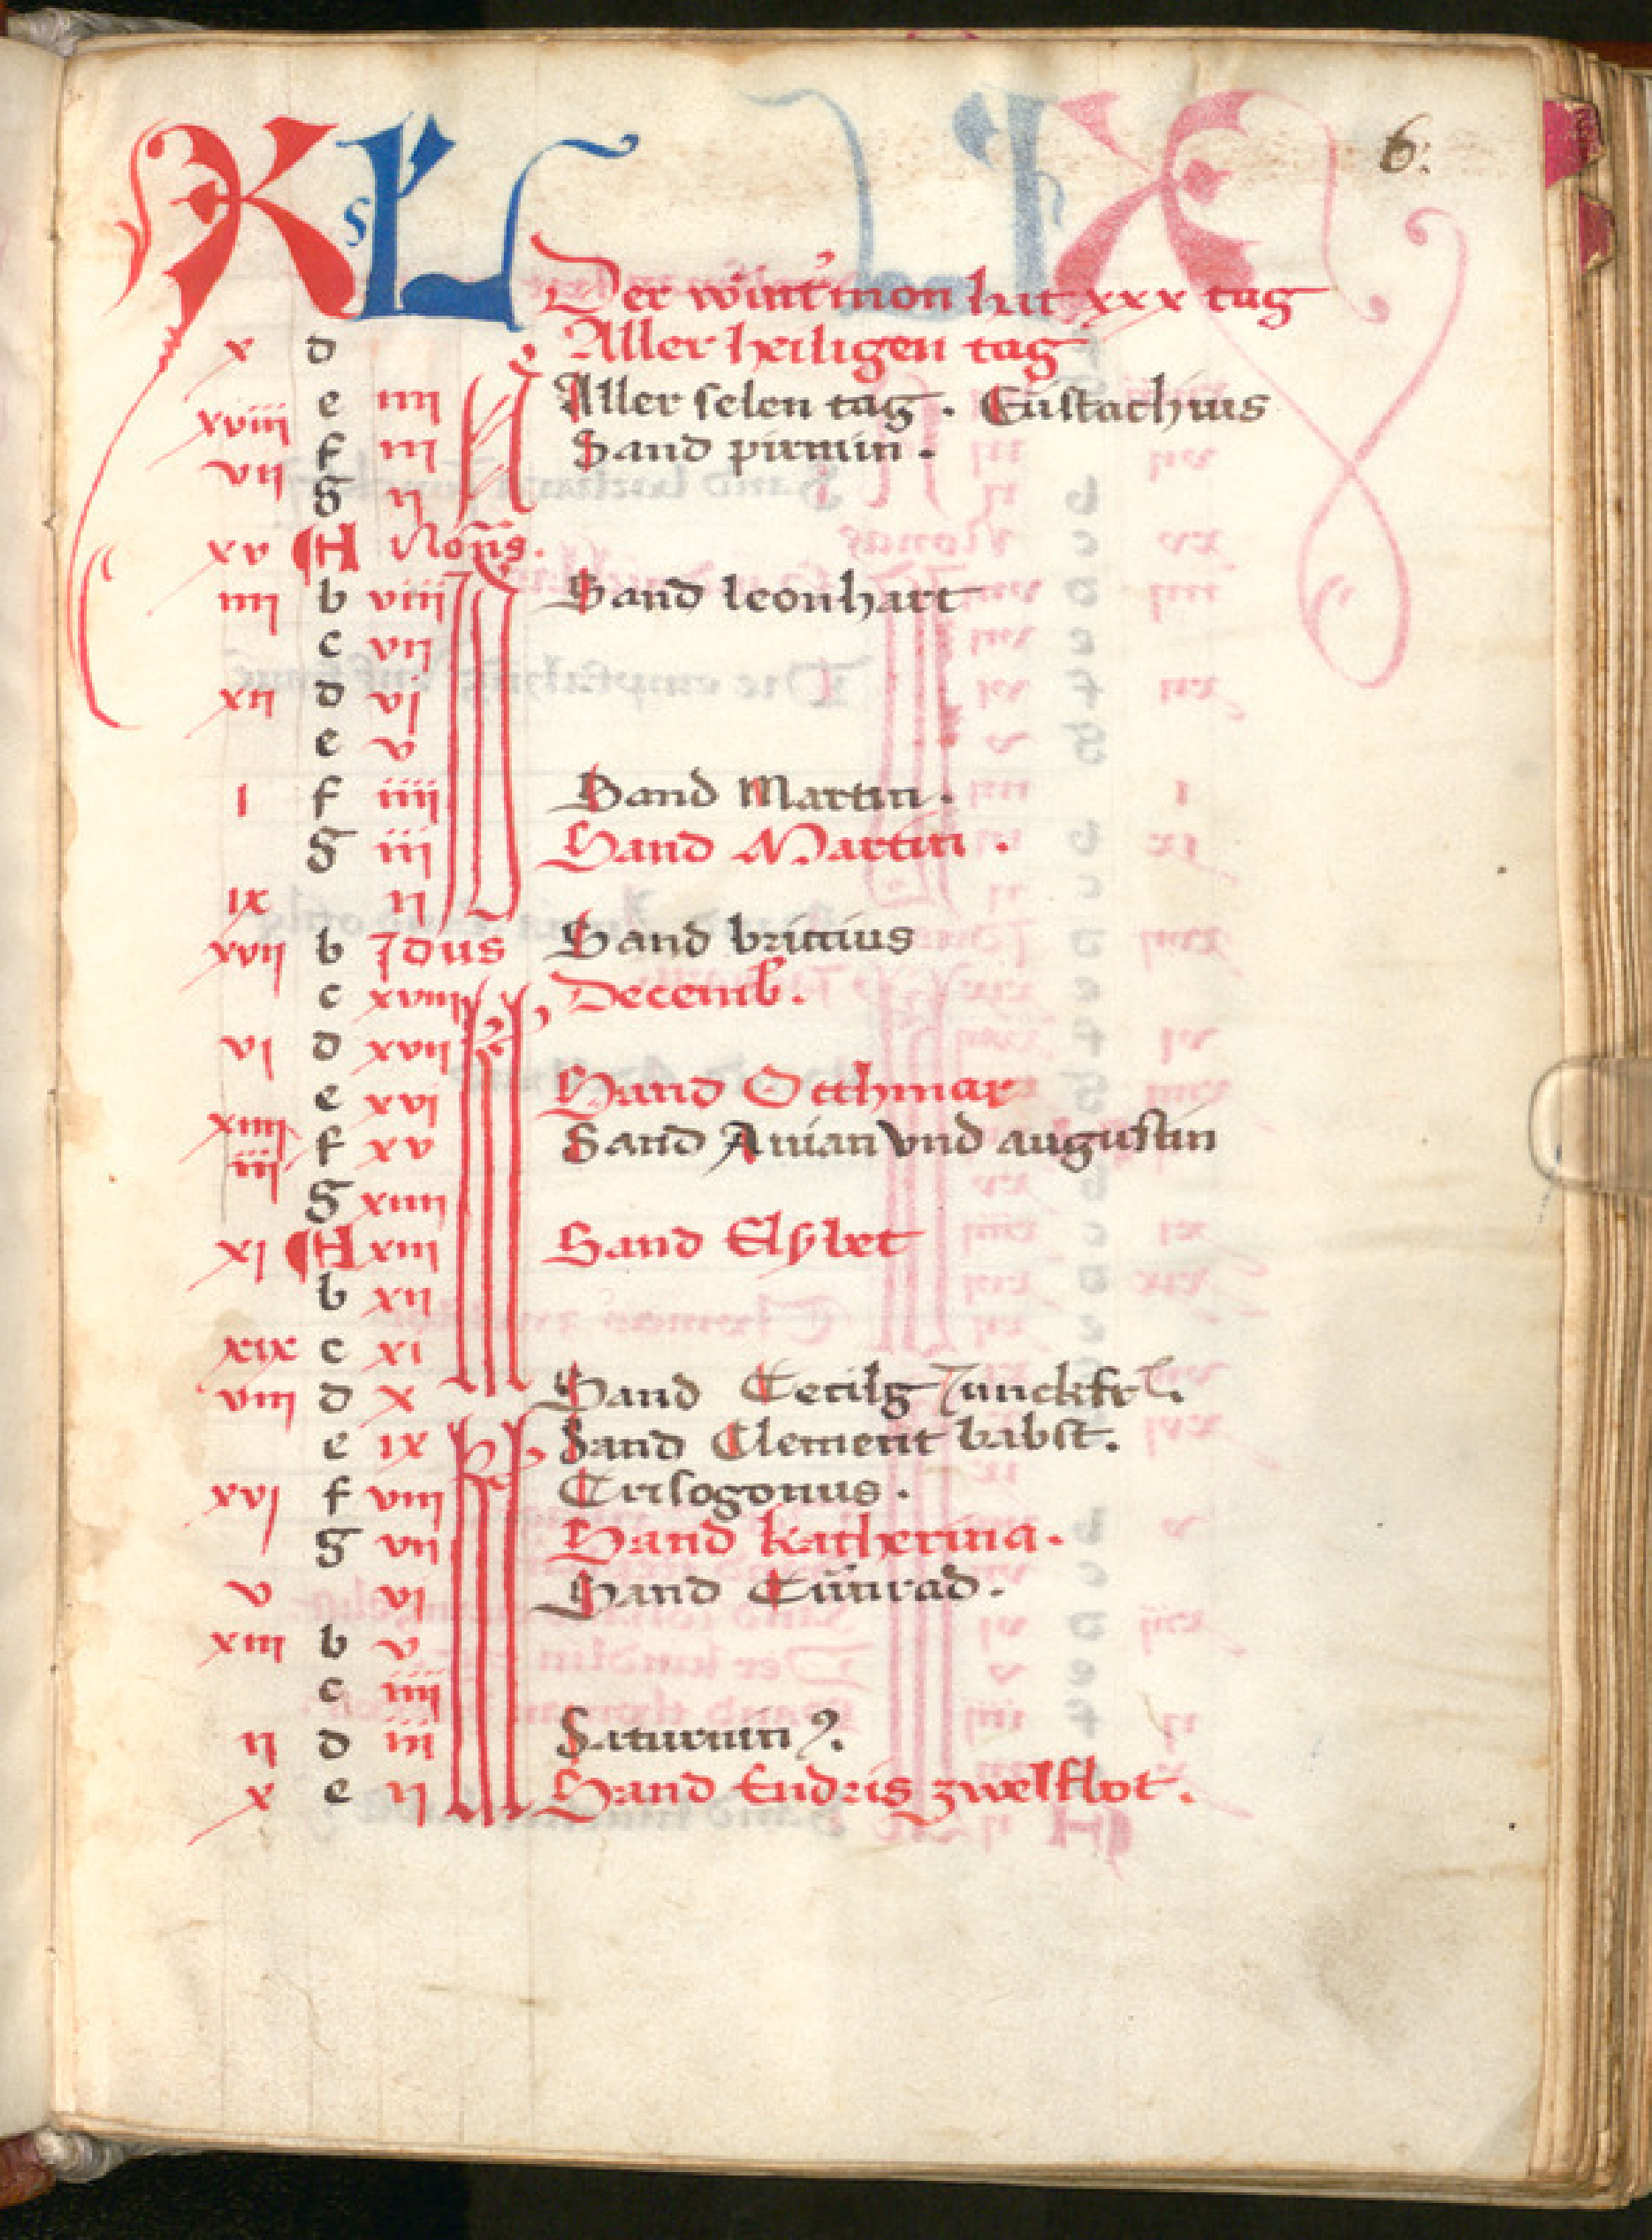 6.
KL
Der wint'mon hat xxx tag
x d Aller heiligen tag
e iiii Aller selen tag . Eustachius
xviii f iii Sand pirmin .
vii g ii
xv A Non̄s.
iiii b viii Sand leonhart
c vii
xii d vi
e v
i f iiii Sand Martin .
g iii Sand Martin .
ix ii
xvii b Idus Sand briccius
c xviii Decemb .
vi d xvii
e xvi Sand Otthmar
xiiii f xv Sand Anian vnd augustin
iii g xiiii
xi A xiii Sand Elsbet
b xii
xix c xi
viii d x Sand Cecilg Junckfr .
e ix Sand Clement babst .
xvi f viii Crisogonus .
g vii Sand katherina .
v vi Sand Cunrad .
xiii b v
c iiii
ii d iii Saturnin9 .
x e ii Sand Endris zwelfbot .